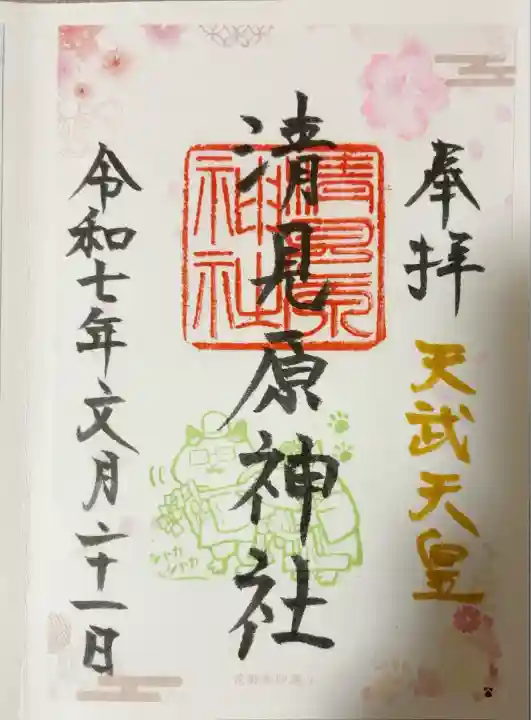 奉拝
天武天皇
清見原神社
清見原
神社
令和七年文月二十一日
シャカ
シャカ